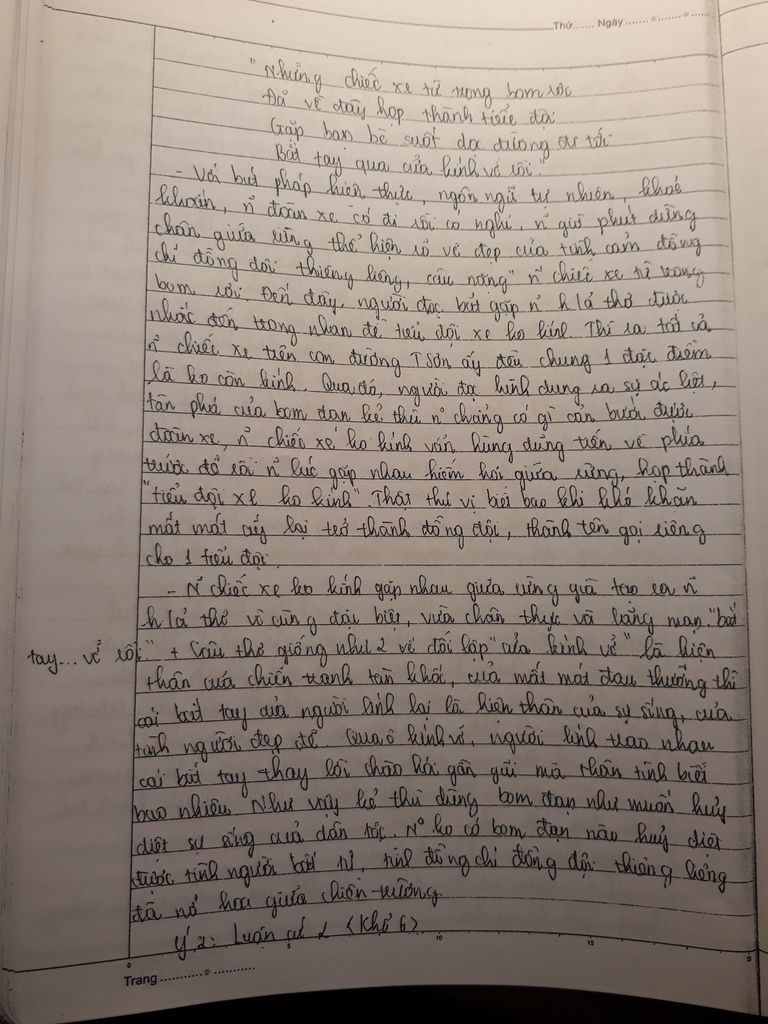 Thứ....... Ngày.......
"Những chiếc xe từ trong bom rơi
Đã về đây họp thành tiểu đội
Gặp bạn bè suốt dọc đường đi tới
Bắt tay qua cửa kính vỡ rồi"
- Với bút pháp hiện thực, ngôn ngữ tự nhiên, khoẻ
khoắn, n~ đoàn xe có đi rồi có nghỉ, n~ giờ phút dừng
chân giữa rừng thể hiện rõ vẻ đẹp của tình cảm đồng
chí đồng đội thiêng liêng, câu nặng "n~ chiếc xe từ trong
bom rơi. Đến đây, người đọc bắt gặp n~ h/ả thơ được
nhắc đến trong nhan đề tiểu đội xe ko kính. Thì ra tất cả
n~ chiếc xe trên con đường TSơn ấy đều chung 1 đặc điểm
là ko còn kính. Qua đó, người đọc hình dung ra sự ác liệt,
tàn phá của bom đạn kẻ thù n° chẳng có gì cản bước được
đoàn xe, n~ chiếc xe ko kính vẫn hùng dũng tiến về phía
trước để rồi n~ lúc gặp nhau hiếm hoi giữa rừng, họp thành
"tiểu đội xe ko kính". Thật thú vị biết bao khi khó khăn
mất mát ấy lại trở thành đồng đội, thành tên gọi riêng
cho 1 tiểu đội.
- N~ chiếc xe ko kính gặp nhau giữa rừng già tạo ra n~
h/ả thơ vô cùng đặc biệt, vừa chân thực và lãng mạn. "bắt
tay... vỡ rồi" + Câu thơ giống như 2 vế đối lập "cửa kính vỡ" là hiện
thân của chiến tranh tàn khốc, của mất mát đau thương thì
cái bắt tay của người lính lại là hiện thân của sự sống, của
tình người đẹp đẽ. Qua ô kính vỡ, người lính trao nhau
cái bắt tay thay lời chào hỏi gần gũi mà thân tình biết
bao nhiêu. Như vậy kẻ thù dùng bom đạn như muốn huỷ
diệt sự sống của dân tộc. N° ko có bom đạn nào huỷ diệt
được tình người bất tử, tình đồng chí đồng đội thiêng liêng
đã nở hoa giữa chiến trường.
Ý 2: Luận cứ 2 (Khổ 6)
0 5 10 15 20
Trang ...............